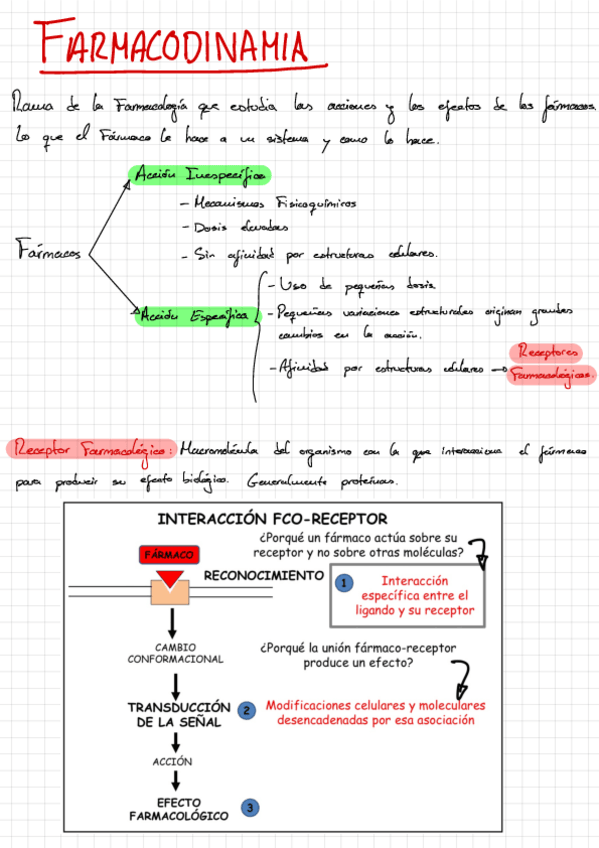 FARMACODINAMIA
Rama de la Farmacología que estudia las acciones y los efectos de los fármacos.
Lo que el Fármaco le hace a un sistema y como lo hace.
Acción Inespecífica
- Mecanismos Fisicoquímicos
- Dosis elevadas
- Sin afinidad por estructuras celulares.
Fármacos
Acción Específica
- Uso de pequeñas dosis
- Pequeñas variaciones estructurales originan grandes
cambios en la acción.
- Afinidad por estructuras celulares → Receptores
Farmacológicos.
Receptor Farmacológico: Macromolécula del organismo con la que interacciona el fármaco
para producir su efecto biológico. Generalmente proteínas.
INTERACCIÓN FCO-RECEPTOR
¿Porqué un fármaco actúa sobre su
receptor y no sobre otras moléculas?
FÁRMACO
RECONOCIMIENTO
1
Interacción
específica entre el
ligando y su receptor
CAMBIO
CONFORMACIONAL
¿Porqué la unión fármaco-receptor
produce un efecto?
TRANSDUCCIÓN
DE LA SEÑAL
2
Modificaciones celulares y moleculares
desencadenadas por esa asociación
ACCIÓN
EFECTO
FARMACOLÓGICO
3